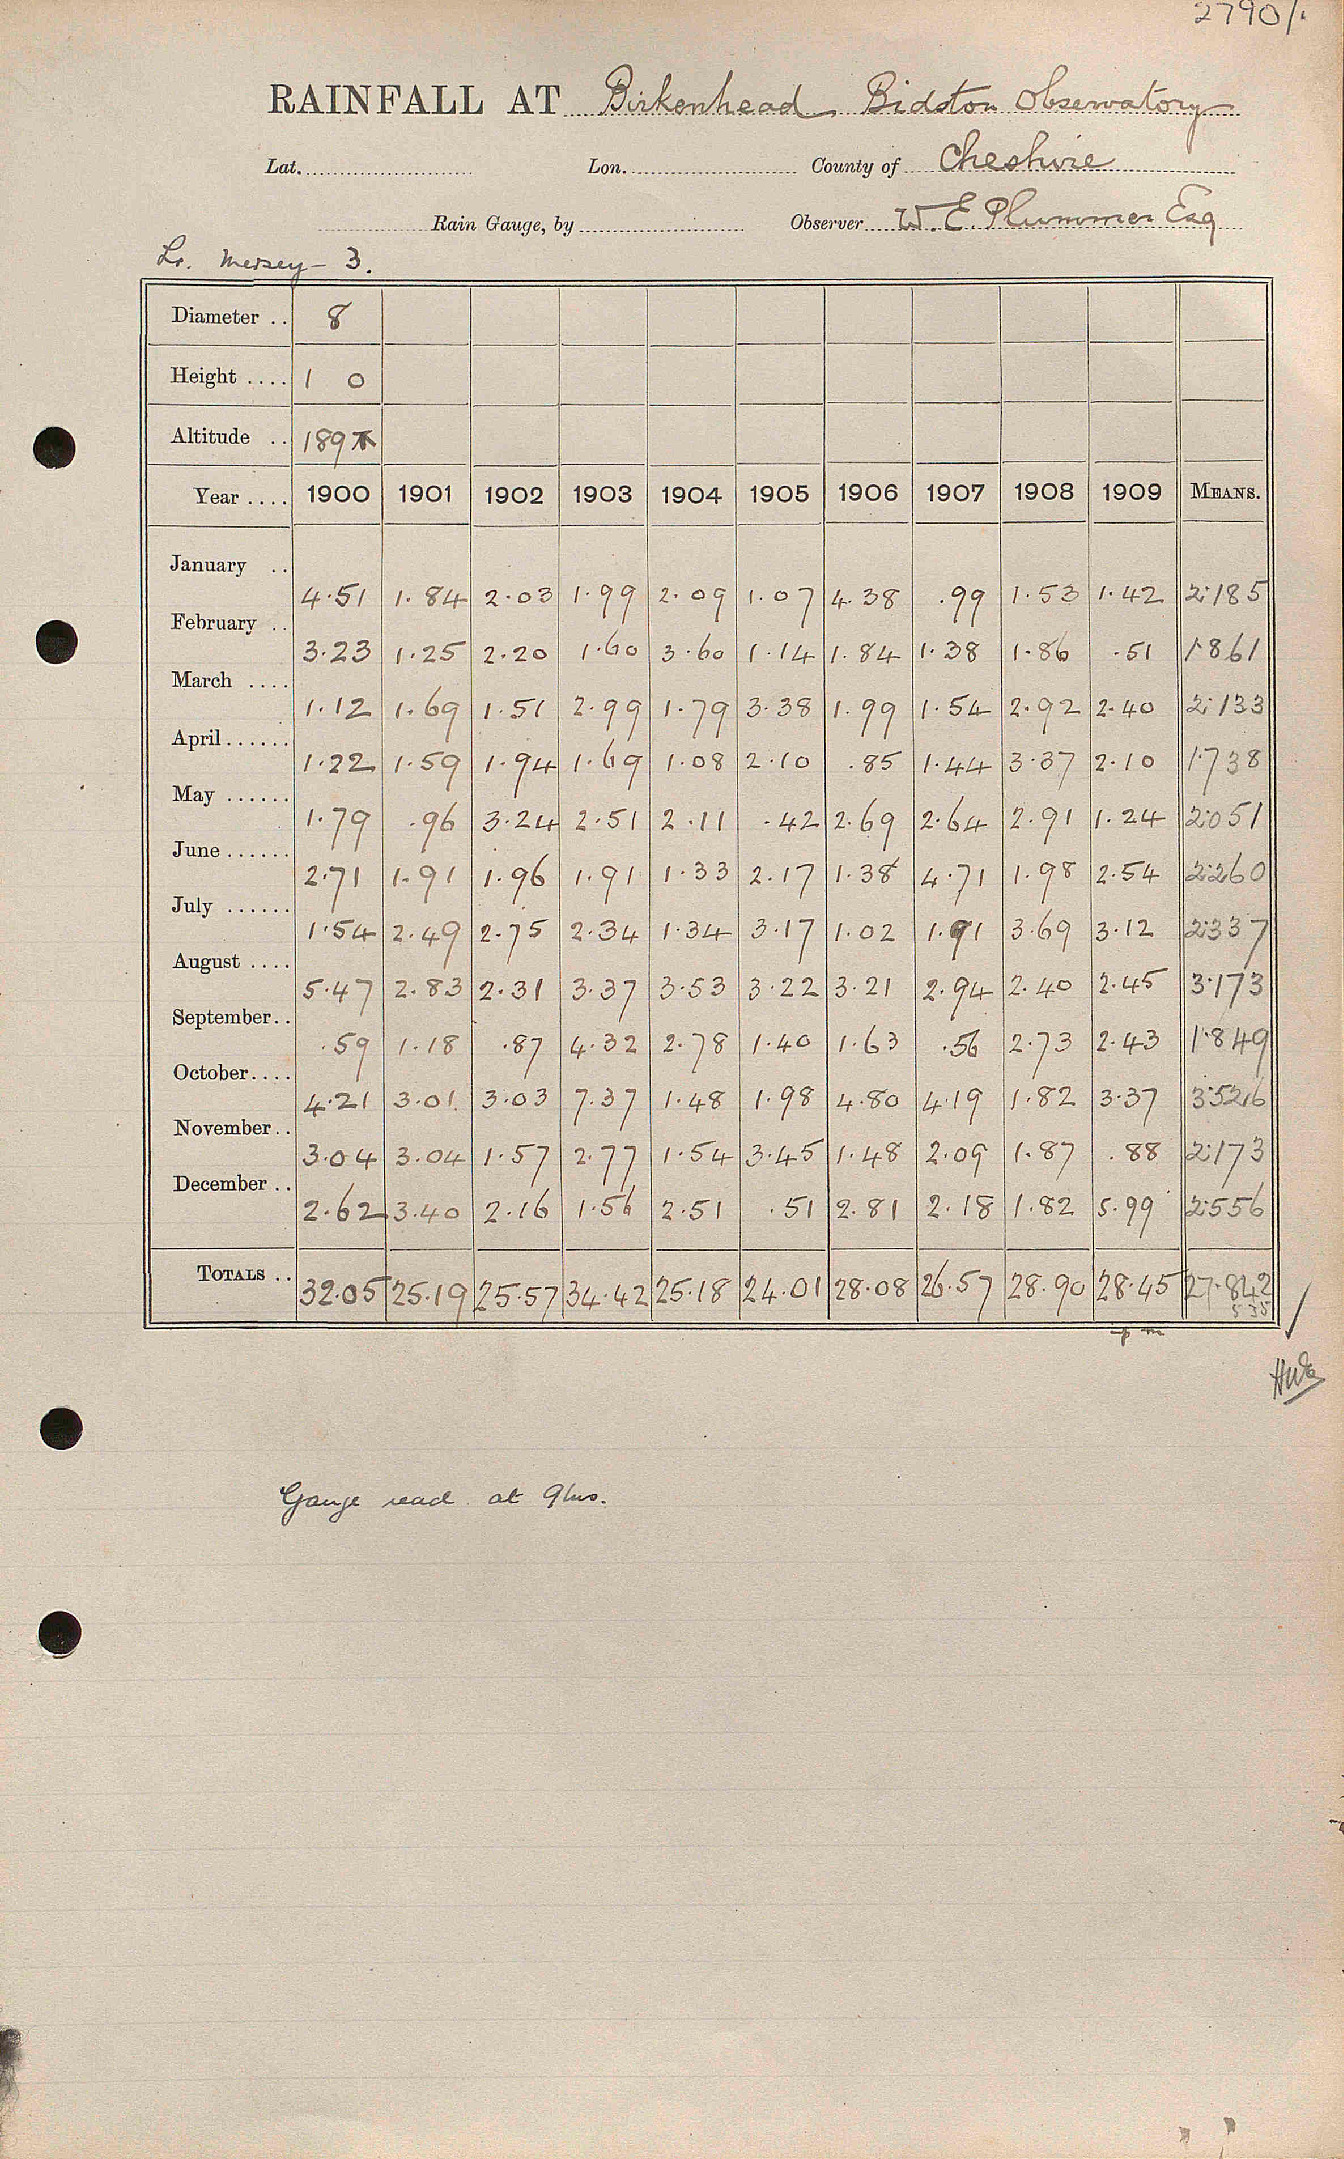 2790/.
RAINFALL AT Birkenhead Bidston Observatory
Lat. Lon. County of Cheshire
Rain Gauge, by Observer W. E. Plummer Esq
Lr. Mersey - 3.
Diameter .. 8
Height .... 1 0
Altitude .. 189
Year .... 1900 1901 1902 1903 1904 1905 1906 1907 1908 1909 MEANS.
January .. 4.51 1.84 2.03 1.99 2.09 1.07 4.38 .99 1.53 1.42 2.185
February .. 3.23 1.25 2.20 1.60 3.60 1.14 1.84 1.38 1.86 .51 1.861
March .... 1.12 1.69 1.51 2.99 1.79 3.38 1.99 1.54 2.92 2.40 2.133
April...... 1.22 1.59 1.94 1.69 1.08 2.10 .85 1.44 3.37 2.10 1.738
May ...... 1.79 .96 3.24 2.51 2.11 .42 2.69 2.64 2.91 1.24 2.051
June...... 2.71 1.91 1.96 1.91 1.33 2.17 1.38 4.71 1.98 2.54 2.260
July ...... 1.54 2.49 2.75 2.34 1.34 3.17 1.02 1.91 3.69 3.12 2.337
August .... 5.47 2.83 2.31 3.37 3.53 3.22 3.21 2.94 2.40 2.45 3.173
September.. .59 1.18 .87 4.32 2.78 1.40 1.63 .56 2.73 2.43 1.849
October.... 4.21 3.01 3.03 7.37 1.48 1.98 4.80 4.19 1.82 3.37 3.526
November.. 3.04 3.04 1.57 2.77 1.54 3.45 1.48 2.09 1.87 .88 2.173
December .. 2.62 3.40 2.16 1.56 2.51 .51 2.81 2.18 1.82 5.99 2.556
TOTALS .. 32.05 25.19 25.57 34.42 25.18 24.01 28.08 26.57 28.90 28.45 27.842
Gauge read at 9hrs.